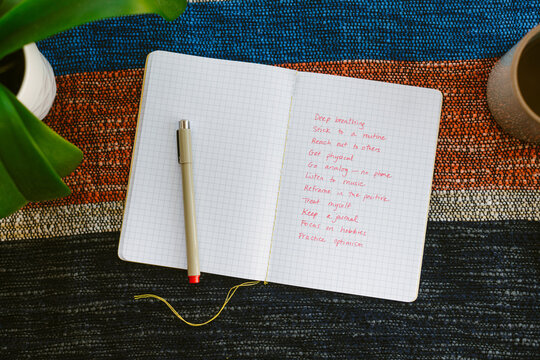 Deep breathing
Stick to a routine
Reach out to others
Get physical
Go analog – no phone
Listen to music
Reframe in the positive
Treat myself
Keep a journal
Focus on hobbies
Practice optimism